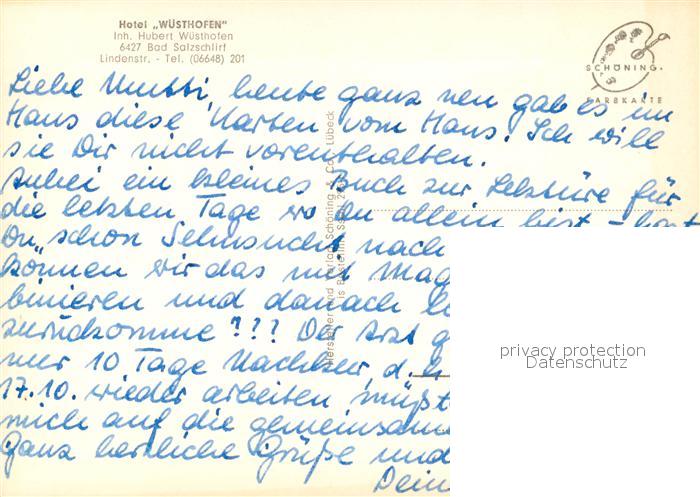 Hotel „WÜSTHOFEN"
Inh. Hubert Wüsthofen
6427 Bad Salzschlirf
Lindenstr. - Tel. (06648) 201
SCHÖNING
FARBKARTE
Liebe Mutti, heute ganz neu gab es im
Haus diese Karten vom Haus. Ich will
sie Dir nicht vorenthalten.
Anbei ein kleines Buch zur Lektüre für
die letzten Tage wo Du allein bist - hast
Du schon Sehnsucht nach
können wir das mit Mag
binieren und danach
zurückkomme ??? Der Arzt g
nur 10 Tage Nachkur, d.h
17.10. wieder arbeiten müßt
mich auf die gemeinsam
Ganz herzliche Grüße und
Dein
Hersteller und Verlag Schöning & Co., Lübeck
privacy protection
Datenschutz